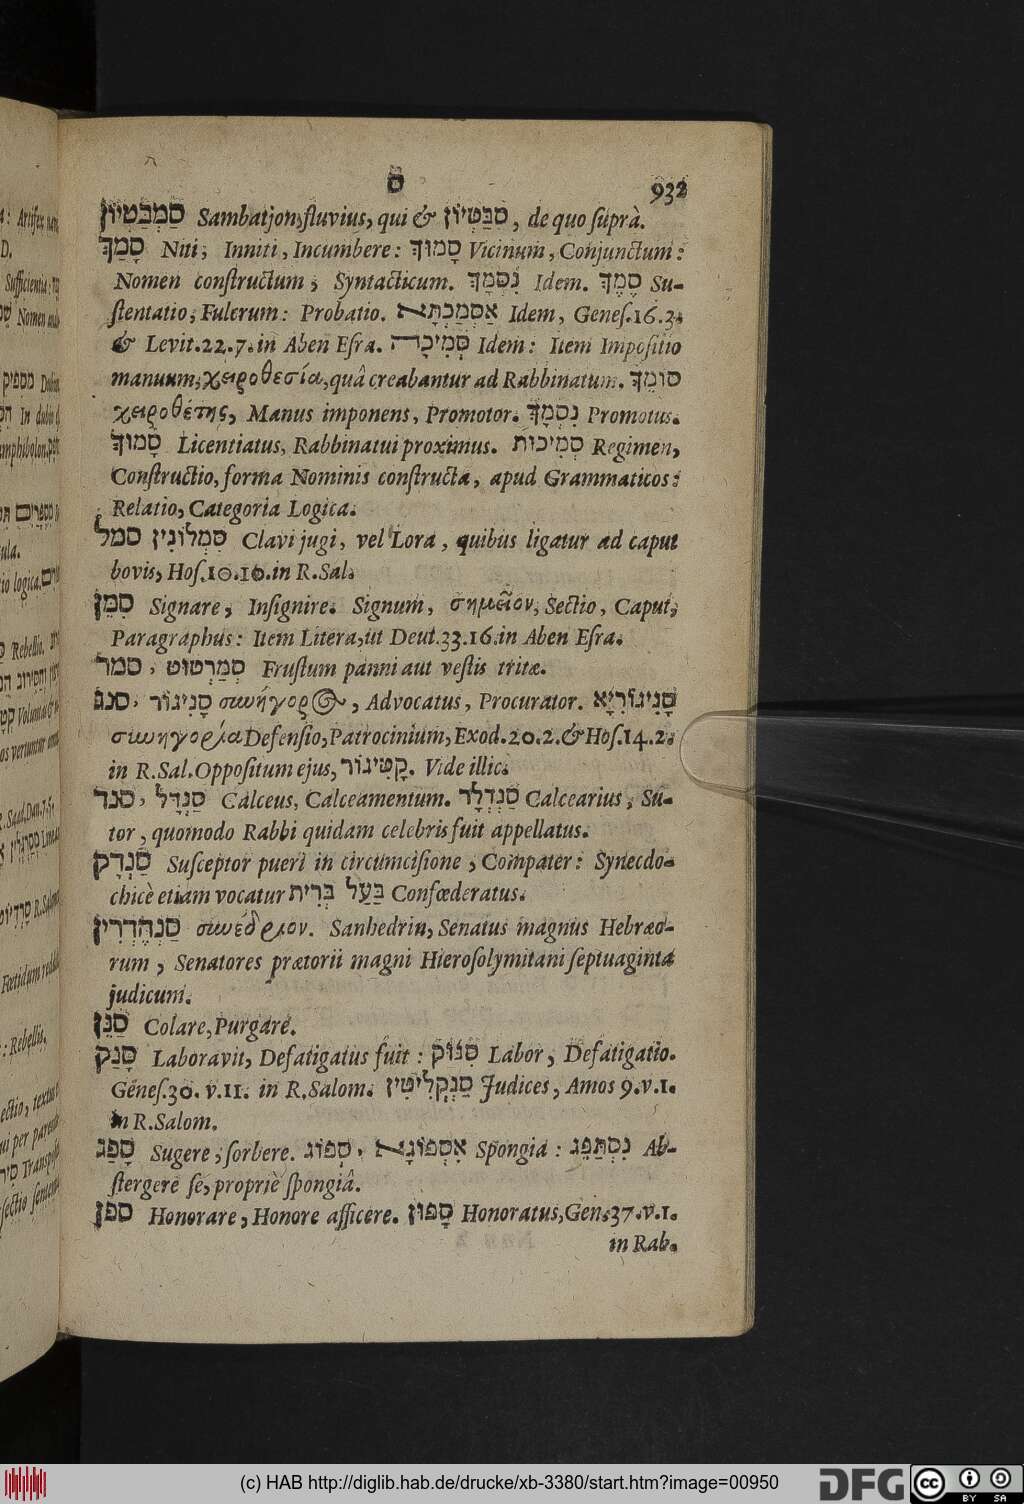 ס 932
סַמְבַּטְיוֹן Sambatjon, fluvius, qui & סַבַּטְיוֹן, de quo ſuprà.
סָמַךְ Niti, Inniti, Incumbere: סָמוּךְ Vicinum, Conjunctum:
Nomen conſtructum; Syntacticum. נִסְמָךְ Idem. סֶמֶךְ Su-
ſtentatio, Fulcrum: Probatio. אַסְמַכְתָּא Idem, Geneſ.16.3.
& Levit.22.7. in Aben Eſra. סְמִיכָה Idem: Item Impoſitio
manuum, χειροθεσία, quâ creabantur ad Rabbinatum. סוֹמֵךְ
χειροθέτης, Manus imponens, Promotor. נִסְמָךְ Promotus.
סָמוּךְ Licentiatus, Rabbinatui proximus. סְמִיכוּת Regimen,
Conſtructio, forma Nominis conſtructa, apud Grammaticos:
Relatio, Categoria Logica.
סמל סִמְלוֹנִין Clavi jugi, vel Lora, quibus ligatur ad caput
bovis, Hoſ.10.10. in R.Sal.
סִמֵּן Signare, Inſignire. Signum, σημεῖον, Sectio, Caput,
Paragraphus: Item Litera, ut Deut.33.16. in Aben Eſra.
סמר, סְמַרְטוּט Fruſtum panni aut veſtis tritæ.
סנג, סָנִיגוֹר συνήγορος, Advocatus, Procurator. סָנִיגוֹרְיָא
συνηγορία Defenſio, Patrocinium, Exod.20.2. & Hoſ.14.2.
in R.Sal. Oppoſitum ejus, קָטִיגוֹר. Vide illic.
סנד, סַנְדָּל Calceus, Calceamentum. סַנְדְּלָר Calcearius, Su-
tor, quomodo Rabbi quidam celebris fuit appellatus.
סַנְדָק Suſceptor pueri in circumciſione, Compater: Synecdo-
chicè etiam vocatur בַּעַל בְּרִית Confœderatus.
סַנְהֶדְרִין συνέδριον. Sanhedrin, Senatus magnus Hebræo-
rum, Senatores prætorii magni Hieroſolymitani ſeptuaginta
judicum.
סַנֵּן Colare, Purgare.
סָנַק Laboravit, Defatigatus fuit: סִנּוּק Labor, Defatigatio.
Geneſ.30. v.11. in R.Salom. סַנְקְלִיטִין Judices, Amos 9.v.1.
in R.Salom.
סָפַג Sugere, ſorbere. סְפוֹג, אִסְפּוֹגָא Spongia: נִסְתַּפֵּג Ab-
ſtergere ſe, propriè ſpongiâ.
ספן Honorare, Honore afficere. סָפוּן Honoratus, Gen.37.v.1.
in Rab.
(c) HAB http://diglib.hab.de/drucke/xb-3380/start.htm?image=00950
DFG
cc BY SA